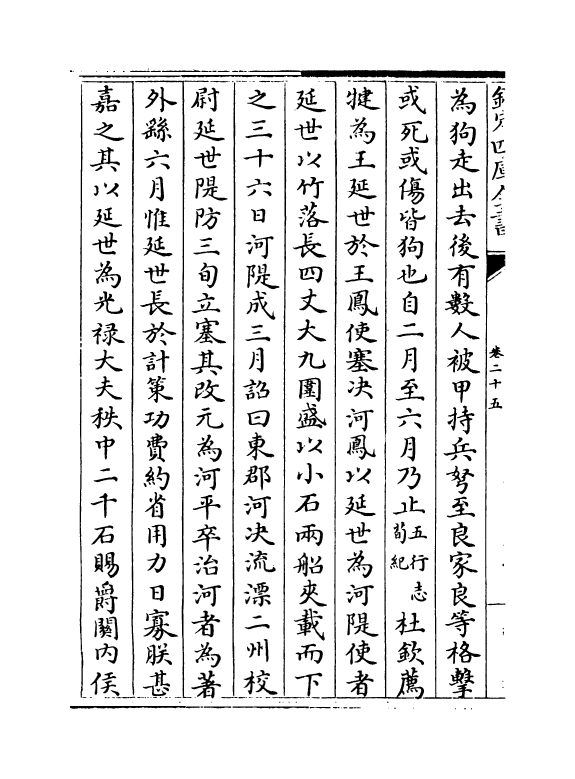 欽定四庫全書
卷二十五
為狗走出去後有數人被甲持兵弩至良家良等格擊
或死或傷皆狗也自二月至六月乃止五行志荀紀杜欽薦
犍為王延世於王鳳使塞決河鳳以延世為河隄使者
延世以竹落長四丈大九圍盛以小石兩船夾載而下
之三十六日河隄成三月詔曰東郡河决流漂二州校
尉延世隄防三旬立塞其改元為河平卒治河者為著
外繇六月惟延世長於計策功費約省用力日寡朕甚
嘉之其以延世為光禄大夫秩中二千石賜爵關內侯